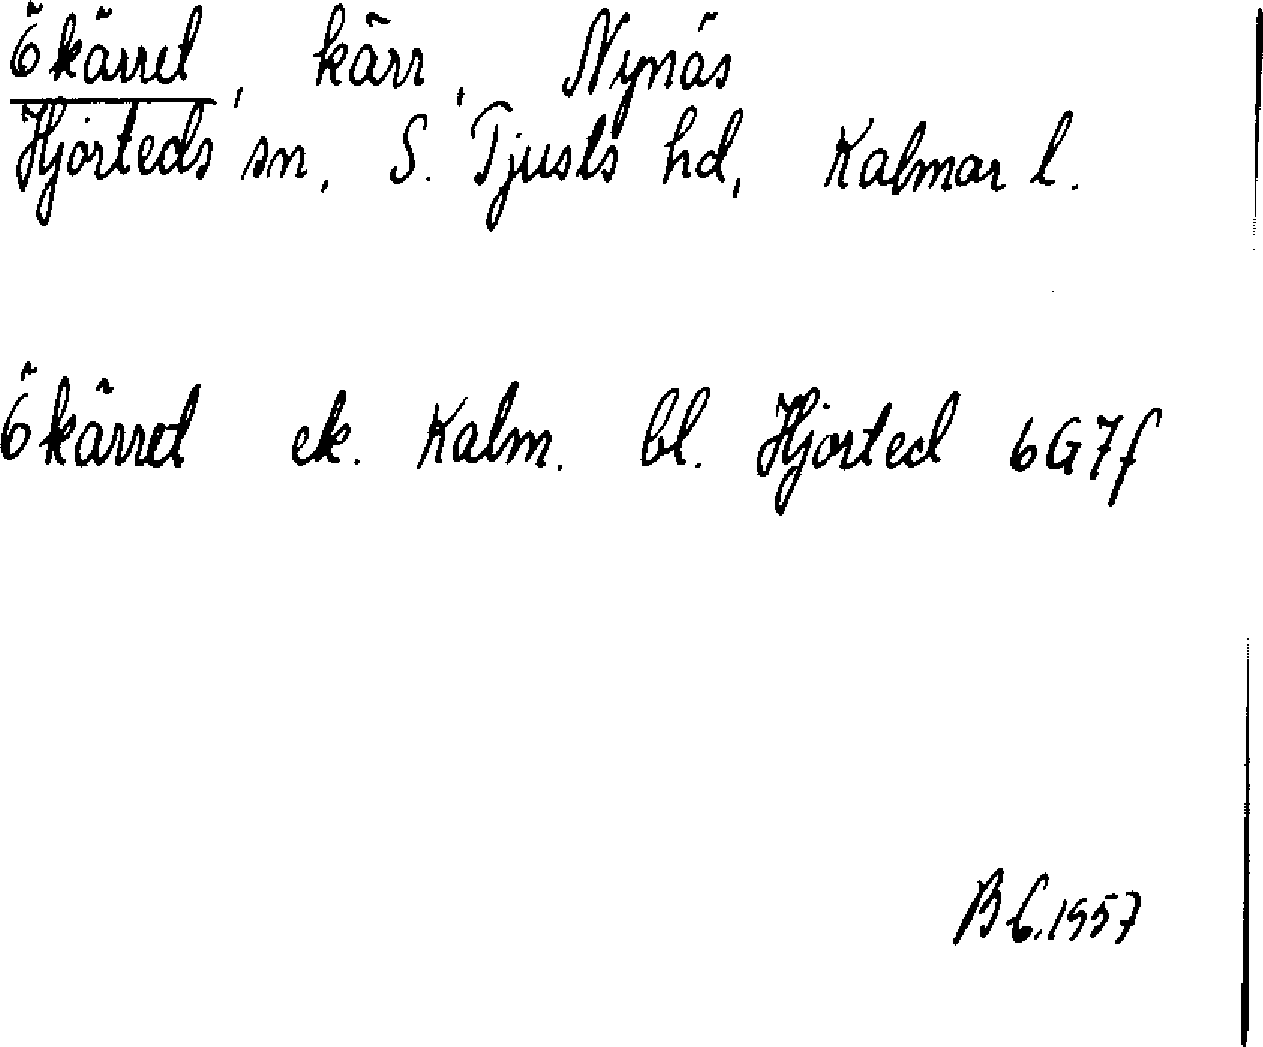 Ökärret, kärr, Nynäs
Hjorteds sn, S. Tjusts hd, Kalmar l.
Ökärret ek. Kalm. bl. Hjorted 6G7f
B6.1957